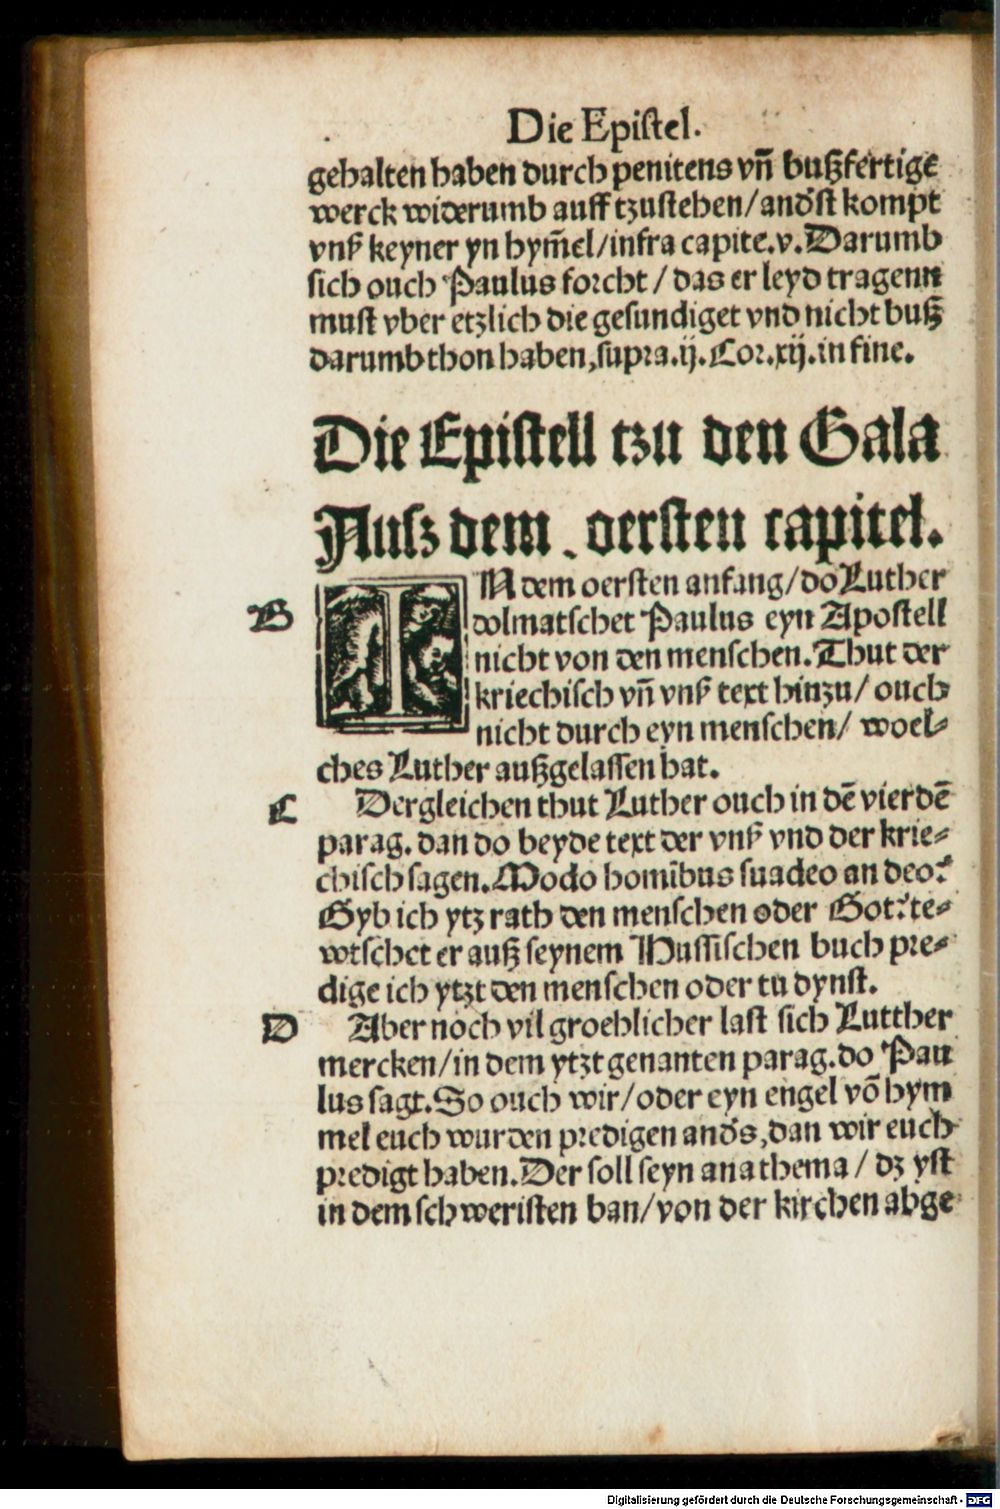 Die Epistel.
gehalten haben durch penitens vn̄ bußfertige
werck widerumb auff tzustehen/andőst kompt
vnß keyner yn hym̄el/infra capite.v.Darumb
sich ouch Paulus forcht / das er leyd tragenn
must vber etzlich die gesundiget vnd nicht buß
darumb thon haben,supra.ij.Cor.xij.in fine.
Die Epistell tzu den Gala
Ausz dem oersten capitel.
B
IN dem oersten anfang/do Luther
dolmatschet Paulus eyn Apostell
nicht von den menschen.Thut der
kriechisch vn̄ vnß text hinzu/ ouch
nicht durch eyn menschen/ woel⸗
ches Luther außgelassen hat.
C
Dergleichen thut Luther ouch in dē vierdē
parag. dan do beyde text der vnß vnd der krie⸗
chisch sagen.Modo homībus suadeo an deo?
Gyb ich ytz rath den menschen oder Got?te⸗
wtschet er auß seynem Hussischen buch pre⸗
dige ich ytzt den menschen oder tu dynst.
D
Aber noch vil groeblicher last sich Lutther
mercken/in dem ytzt genanten parag.do Pau
lus sagt.So ouch wir/oder eyn engel vō hym
mel euch wurden predigen andős,dan wir euch
predigt haben.Der soll seyn anathema / dz yst
in dem schweristen ban/von der kirchen abge
Digitalisierung gefördert durch die Deutsche Forschungsgemeinschaft - DFG